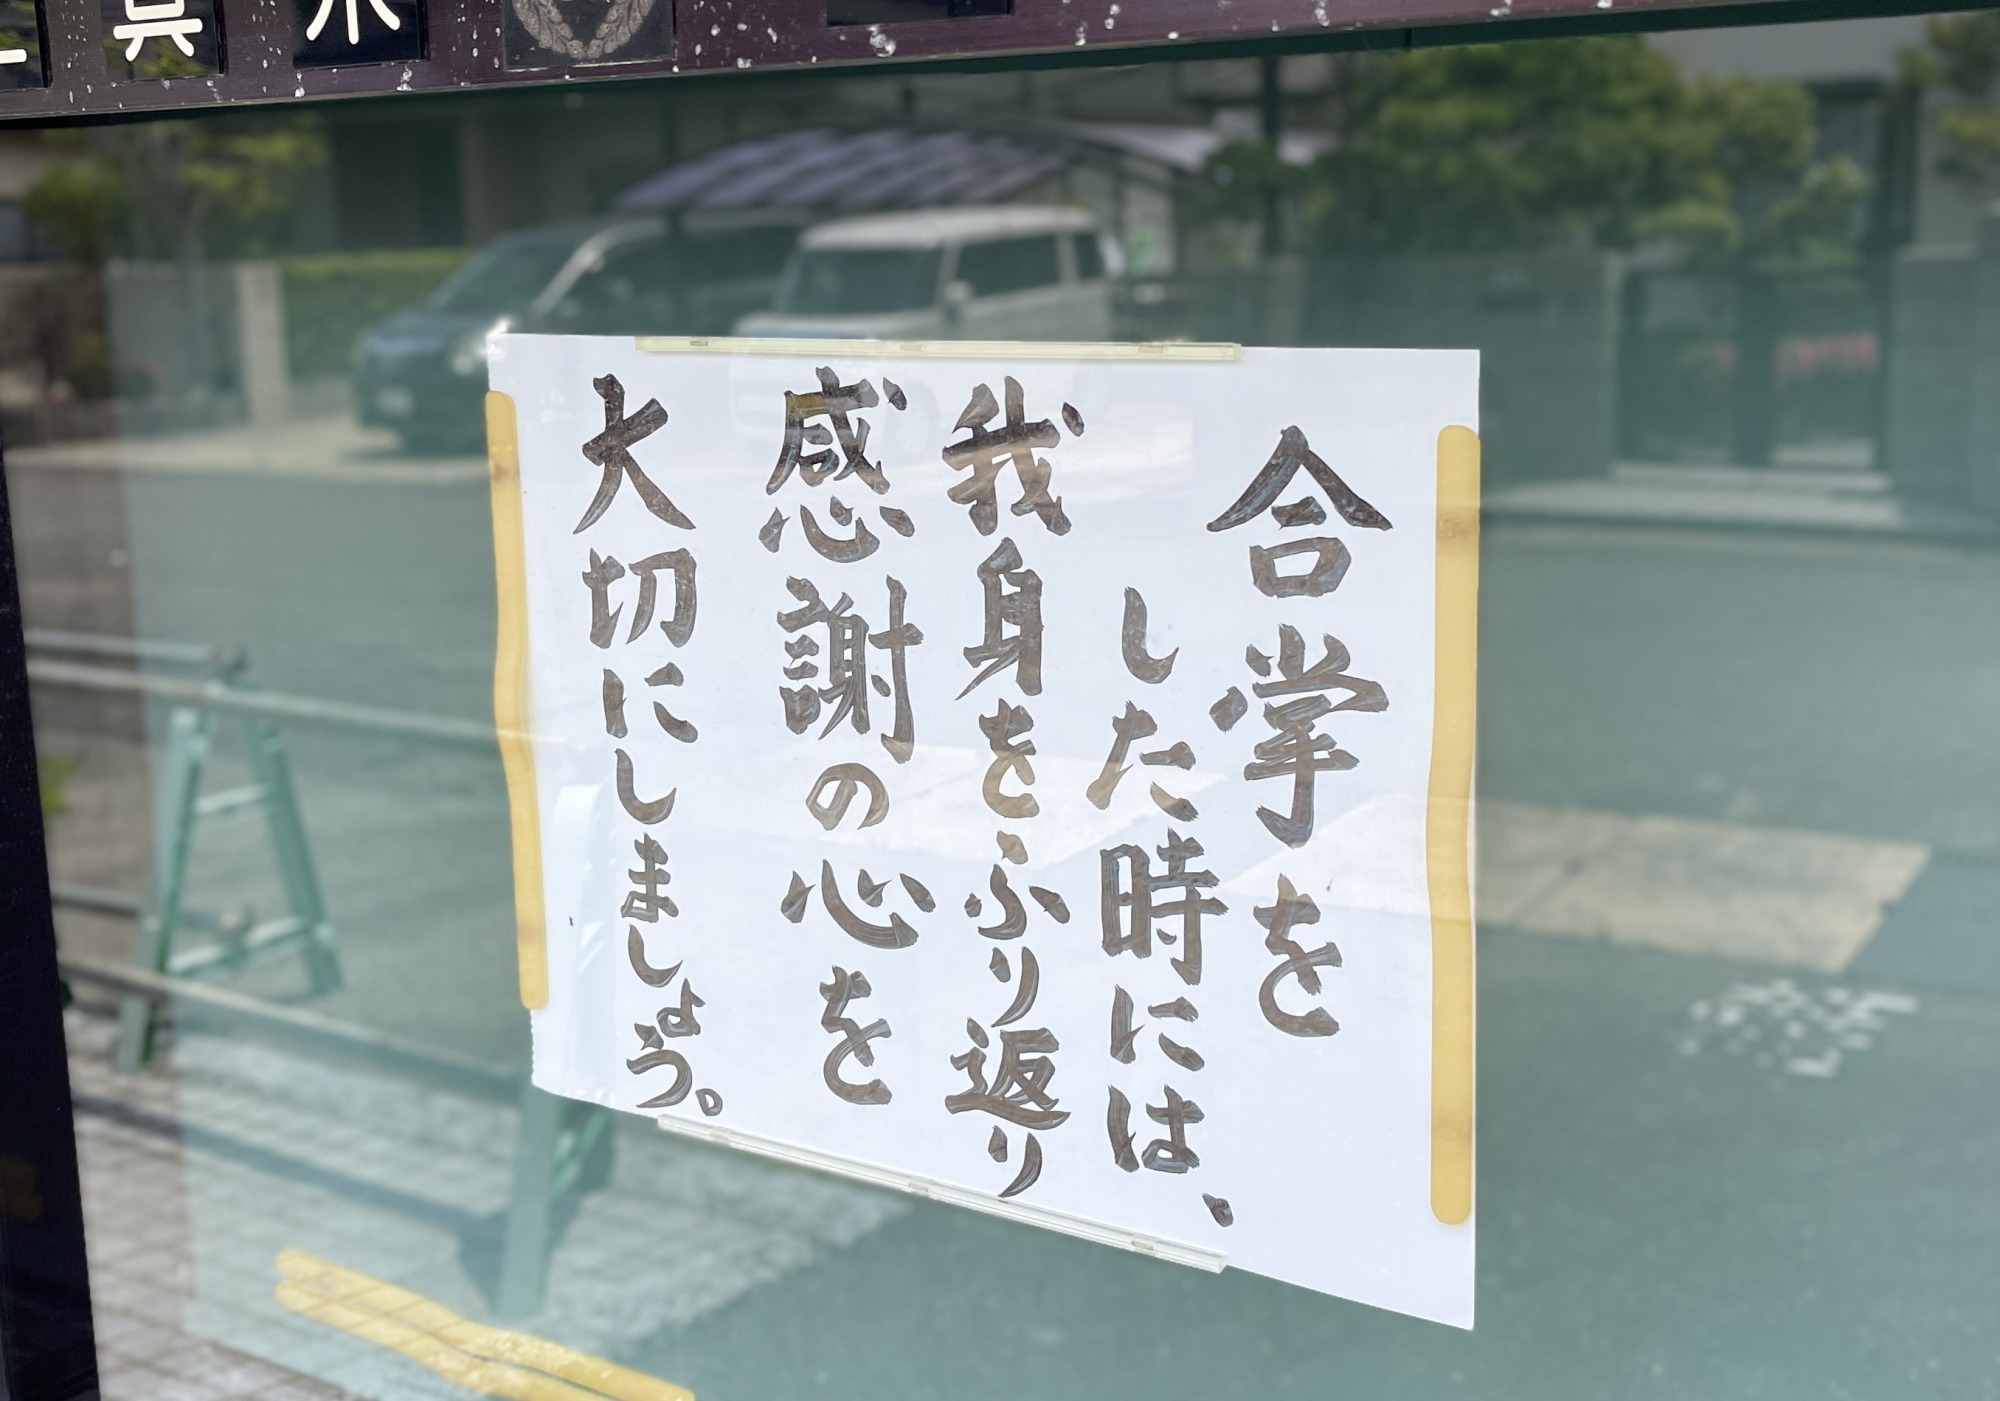 合掌を
した時には、
我身をふり返り
感謝の心を
大切にしましょう。